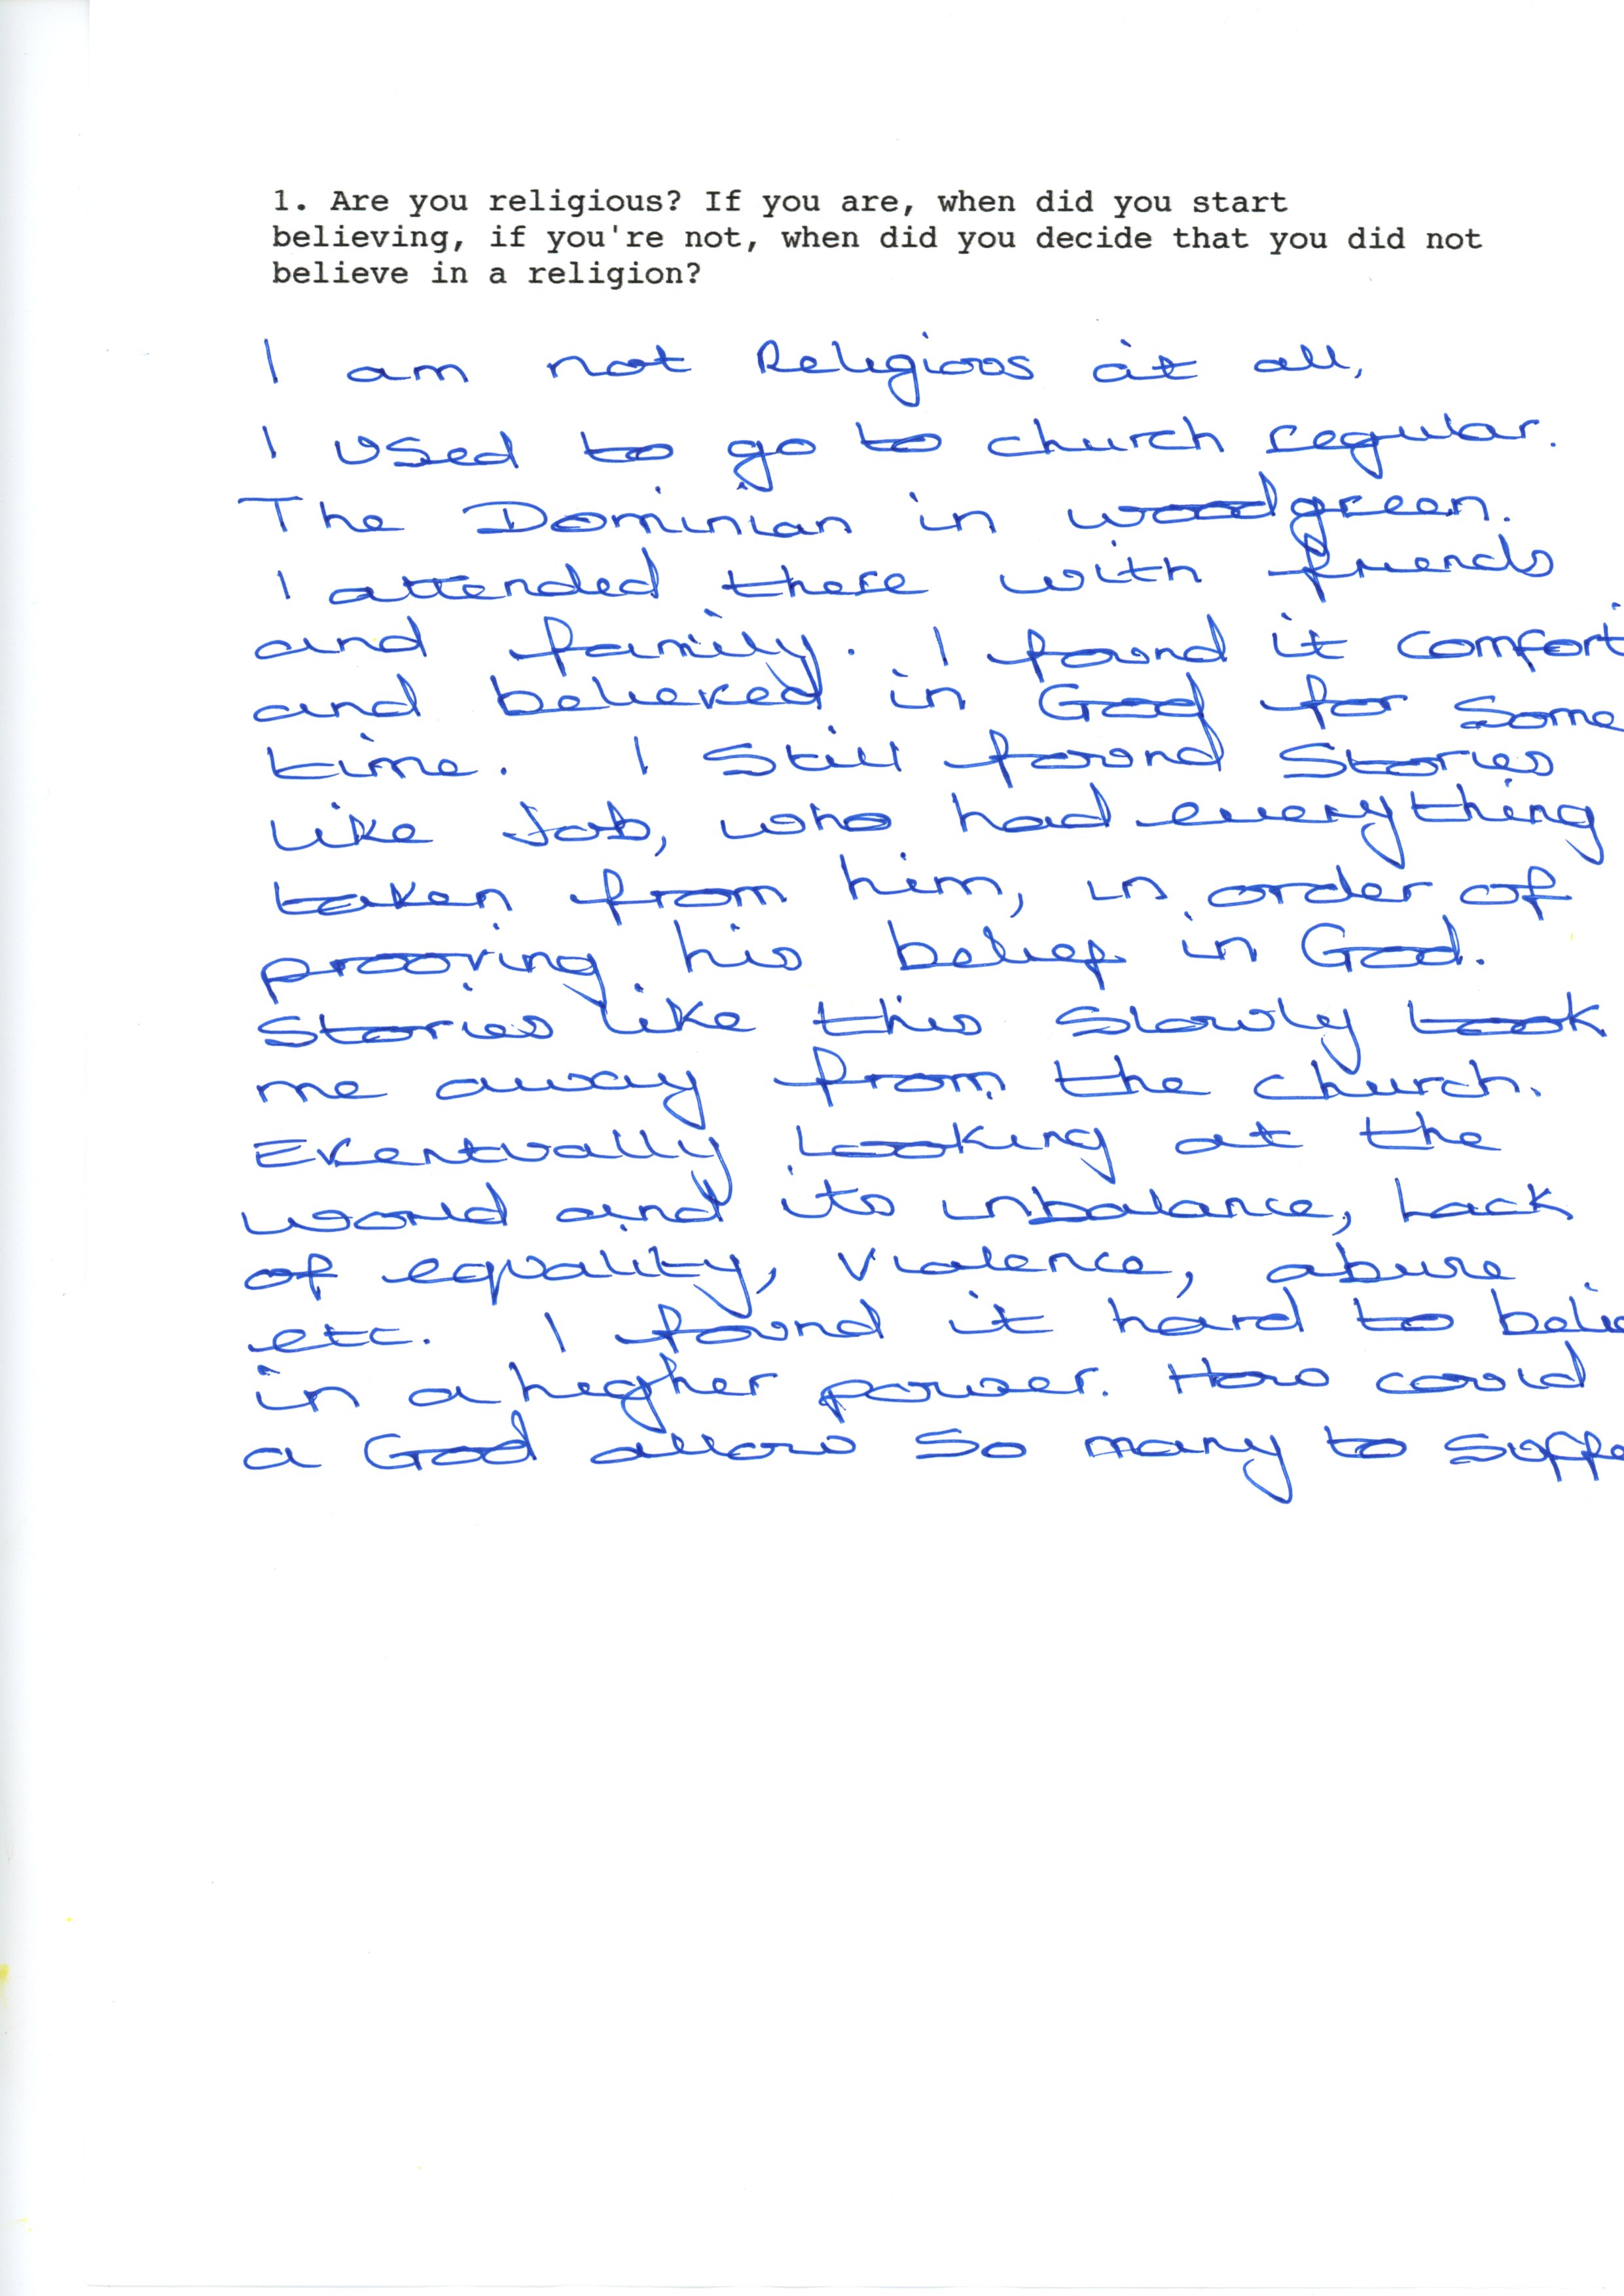 1. Are you religious? If you are, when did you start
believing, if you're not, when did you decide that you did not
believe in a religion?
I am not Religious at all,
I used to go to church regular.
The Dominian in woodgreen.
I attended there with friends
and family. I found it comfort
and believed in God for some
time. I still found stories
like Job, who had everything
taken from him, in order of
prooving his belief in God.
Stories like this slowly took
me away from the church.
Eventually Looking at the
world and its inbalance, Lack
of equality, Violence, abuse
etc. I found it hard to belie
in a higher power. How could
a God allow so many to suffe